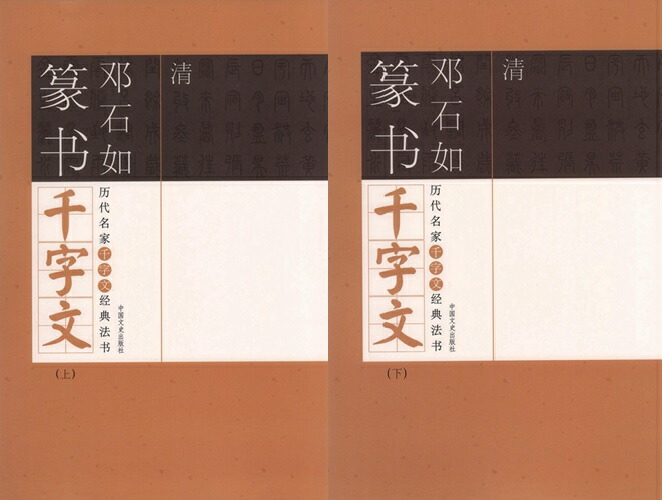 清
邓石如
篆书
历代名家千字文经典法书
千字文
中国文史出版社
(上)
清
邓石如
篆书
历代名家千字文经典法书
千字文
中国文史出版社
(下)